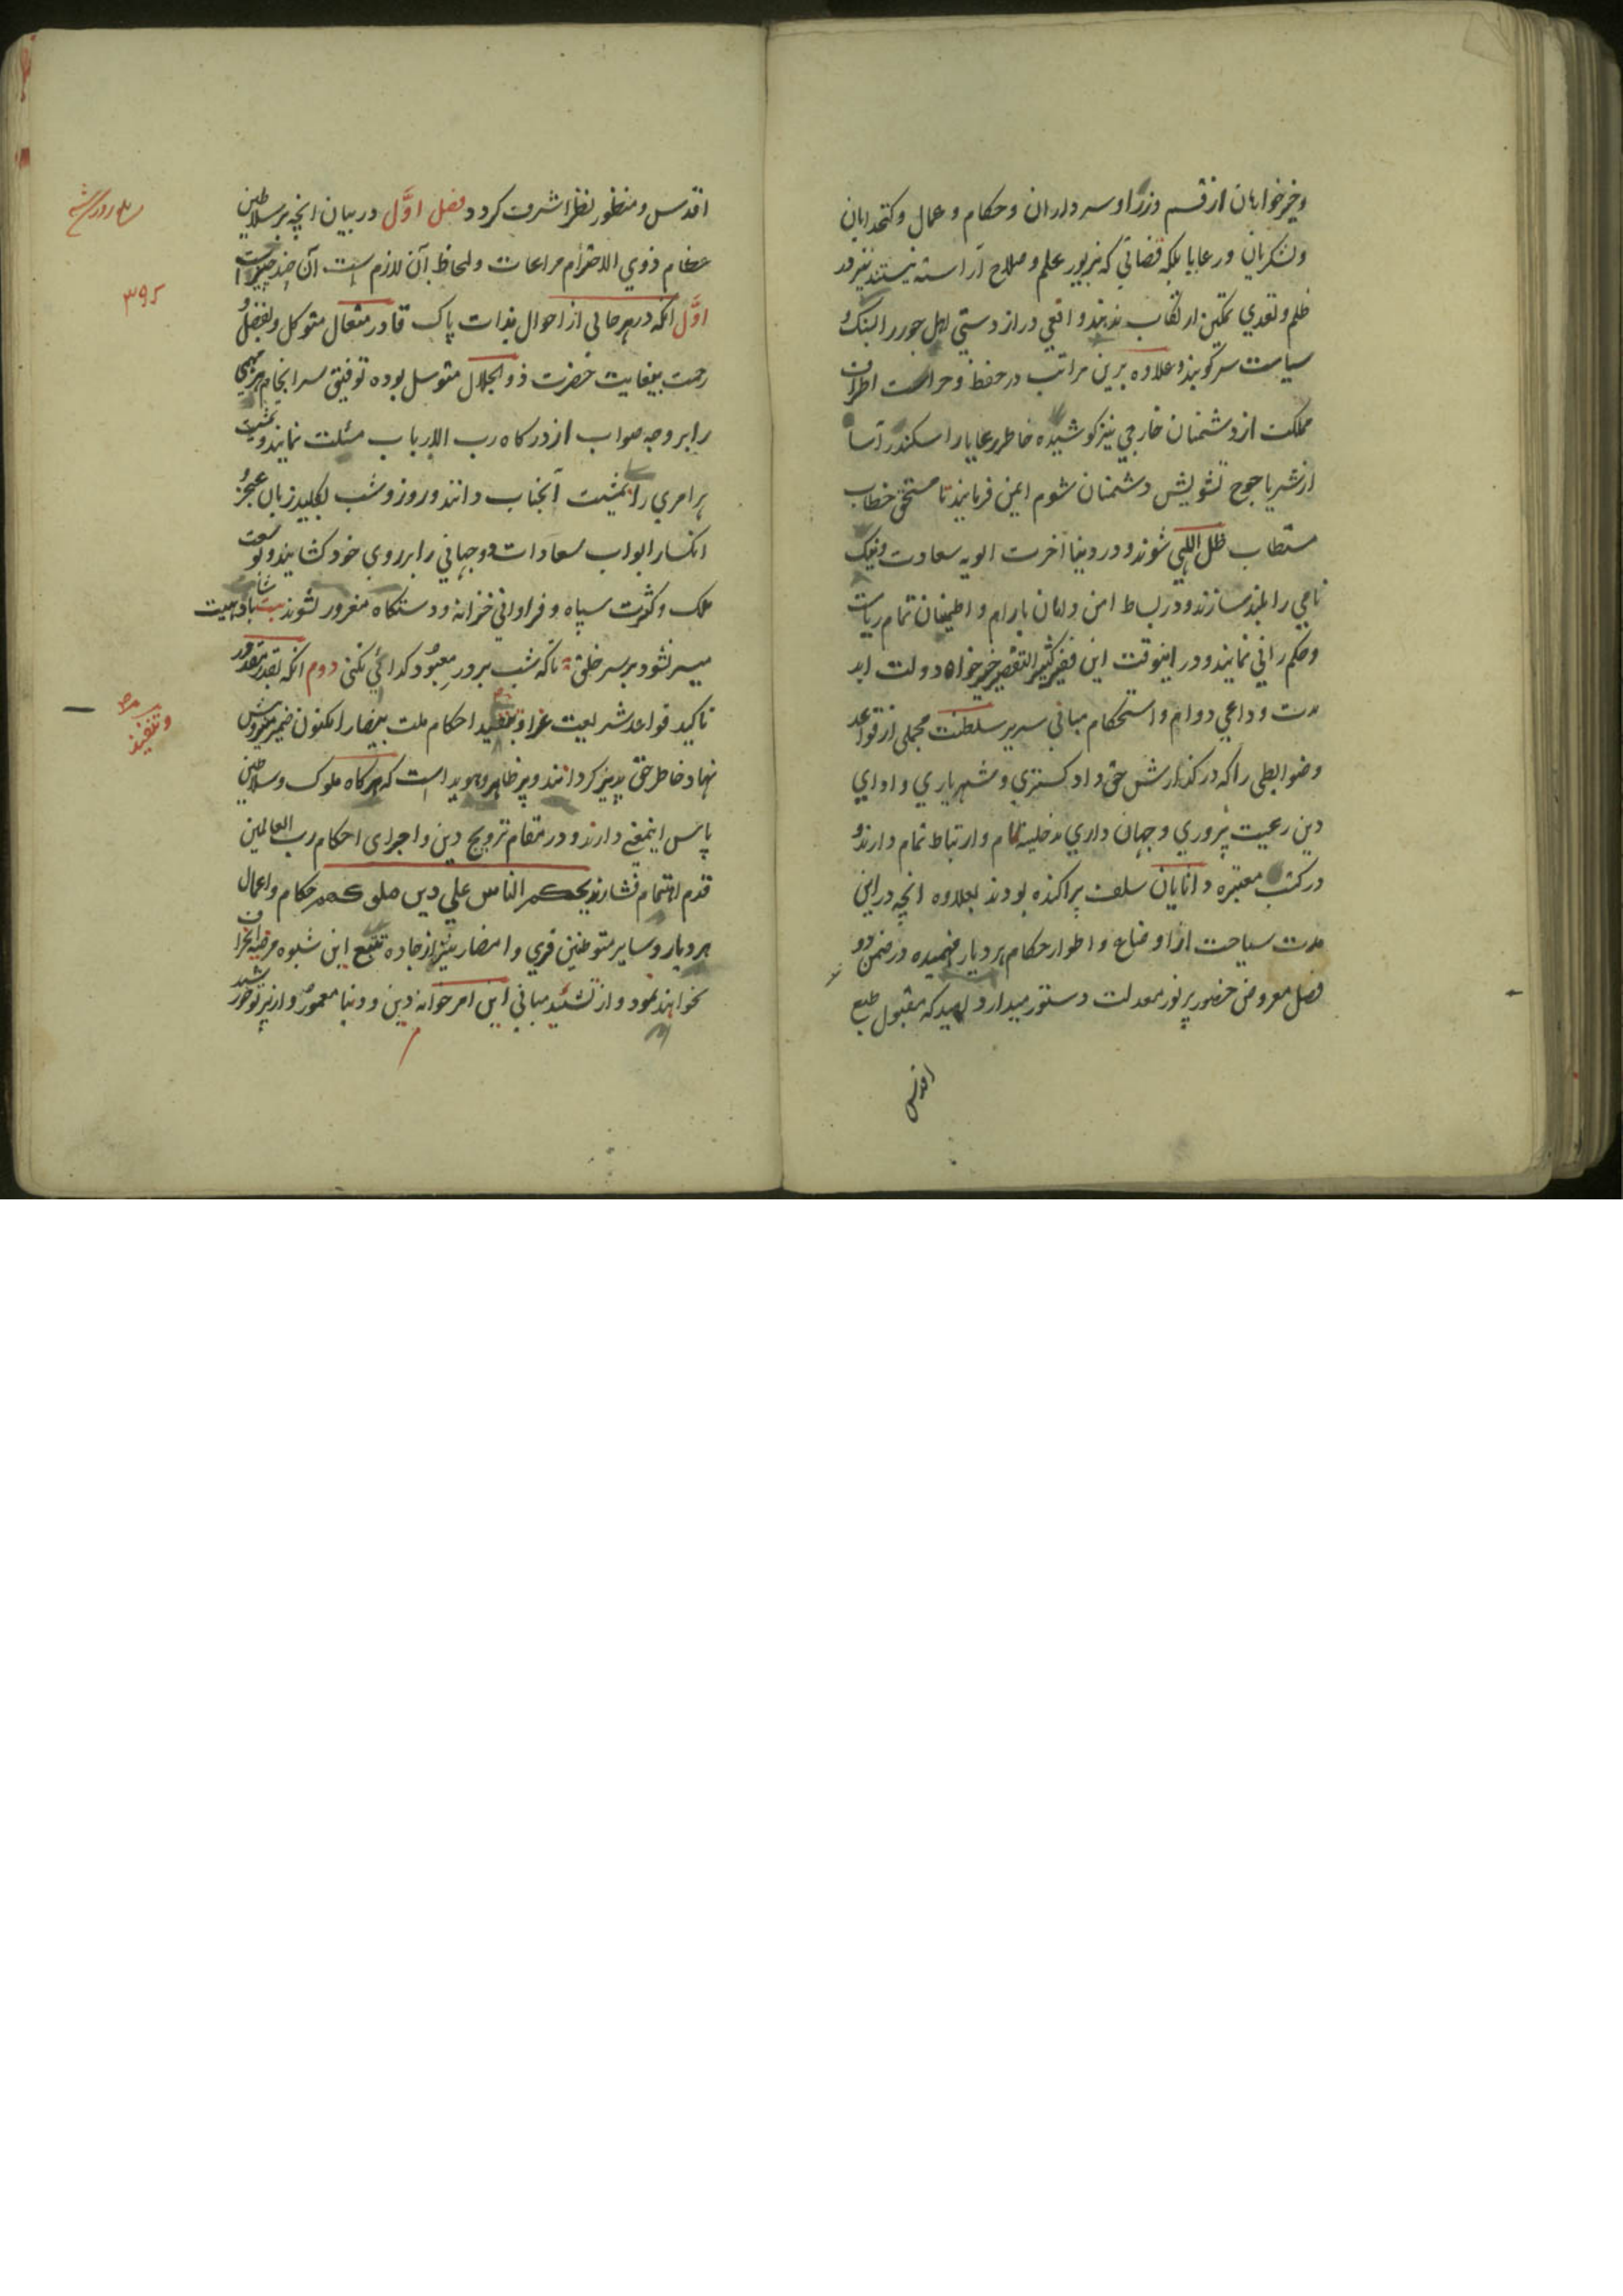 وخیرخواهان از قسم وزرا و سرداران و حکام و عمال و کتخدایان
ولشکریان و رعایا بلکه قضاتی که بزیور علم و صلاح آراسته نیستند نیز قد
ظلم و تعدی تمکین ارتکاب ندهند و افعی دراز دستی اهل جور را بسنک
سیاست سرکوبند و علاوه برین مراتب در حفظ و حراست اطراف
مملکت از دشمنان خارجی نیز کوشیده خاطر رعایا را سکندر آسا
از شر یاجوج تشویش دشمنان شوم ایمن فرمایند تا مستحق خطاب
مستطاب ظل اللهی شوند و در دنیا آخرت الویه سعادت و نیک
نامی را بلند سازند و در بساط امن و امان بارام و اطمینان تمام ریاست
و حکم رانی نمایند و در اینوقت این فقیر کثیر التقصیر خیرخواه دولت ابد
مدت و داعی دوام و استحکام مبانی سریر سلطنت مجملی از قواعد
و ضوابطی را که در کذارش حق داد کستری و شهریاری و ادای
دین رعیت پروری و جهان داری مدخلیه تام و ارتباط تمام دارند و
در کتب معتبره دانایان سلف پراکنده بودند بعلاوه انچه در این
مدت سیاحت از اوضاع و اطوار حکام هر دیار فهمیده در ضمن دو
فصل معروض حضور پرنور معدلت دستور میدارد امید که مقبول طبع
اقدس
اقدس و منظور نظر اشرف کردد فصل اوَّل در بیان انچه بر سلاطین
عظام ذوی الاحترام مراعات و لحاظ آن لازم است آن چند چیز است
اوَّل انکه در هر حالی از احوال بذات پاک قادر متعال متوکل و بفضل و
رحمت بیغایت حضرت ذو الجلال متوسل بوده توفیق سرانجام هر مهمی
را بر وجه صواب از درکاه رب الارباب مسئلت نمایند و تمشیت
هر امری را بمشیت آنجناب دانند و روز و شب بکلید زبان عجز و
انکسار ابواب سعادات دوجهانی را بر روی خود کشایند و بوسعت
ملک و کثرت سپاه و فراوانی خزانه و دستکاه مغرور نشوند بیت شاها باد بهیت
میسر نشود بر سر خلق تا که شب بر در معبود کدائی نکنی دوم انکه بقدر مقدور
تاکید قواعد شریعت غرا و تنفیذ احکام ملت بیضا را مکنون ضمیر
نهاد خاطر حق پذیر کردانند و پر ظاهر و هویدا است که هر کاه ملوک و سلاطین
پاس اینمعنی دارند و در مقام ترویج دین و اجرای احکام رب العالمین
قدم اهتمام فشارند بحکم الناس علی دین ملوکهم حکام و اعمال
هر دیار و سایر متوطنین قری و امصار نیز از جاده تتبع این شیوه مرضیه انحراف
نخواهند نمود و از تشئید مبانی این امر دین و دنیا معمور و از پرتو خورشید
۳۹۵
وتنفیذ